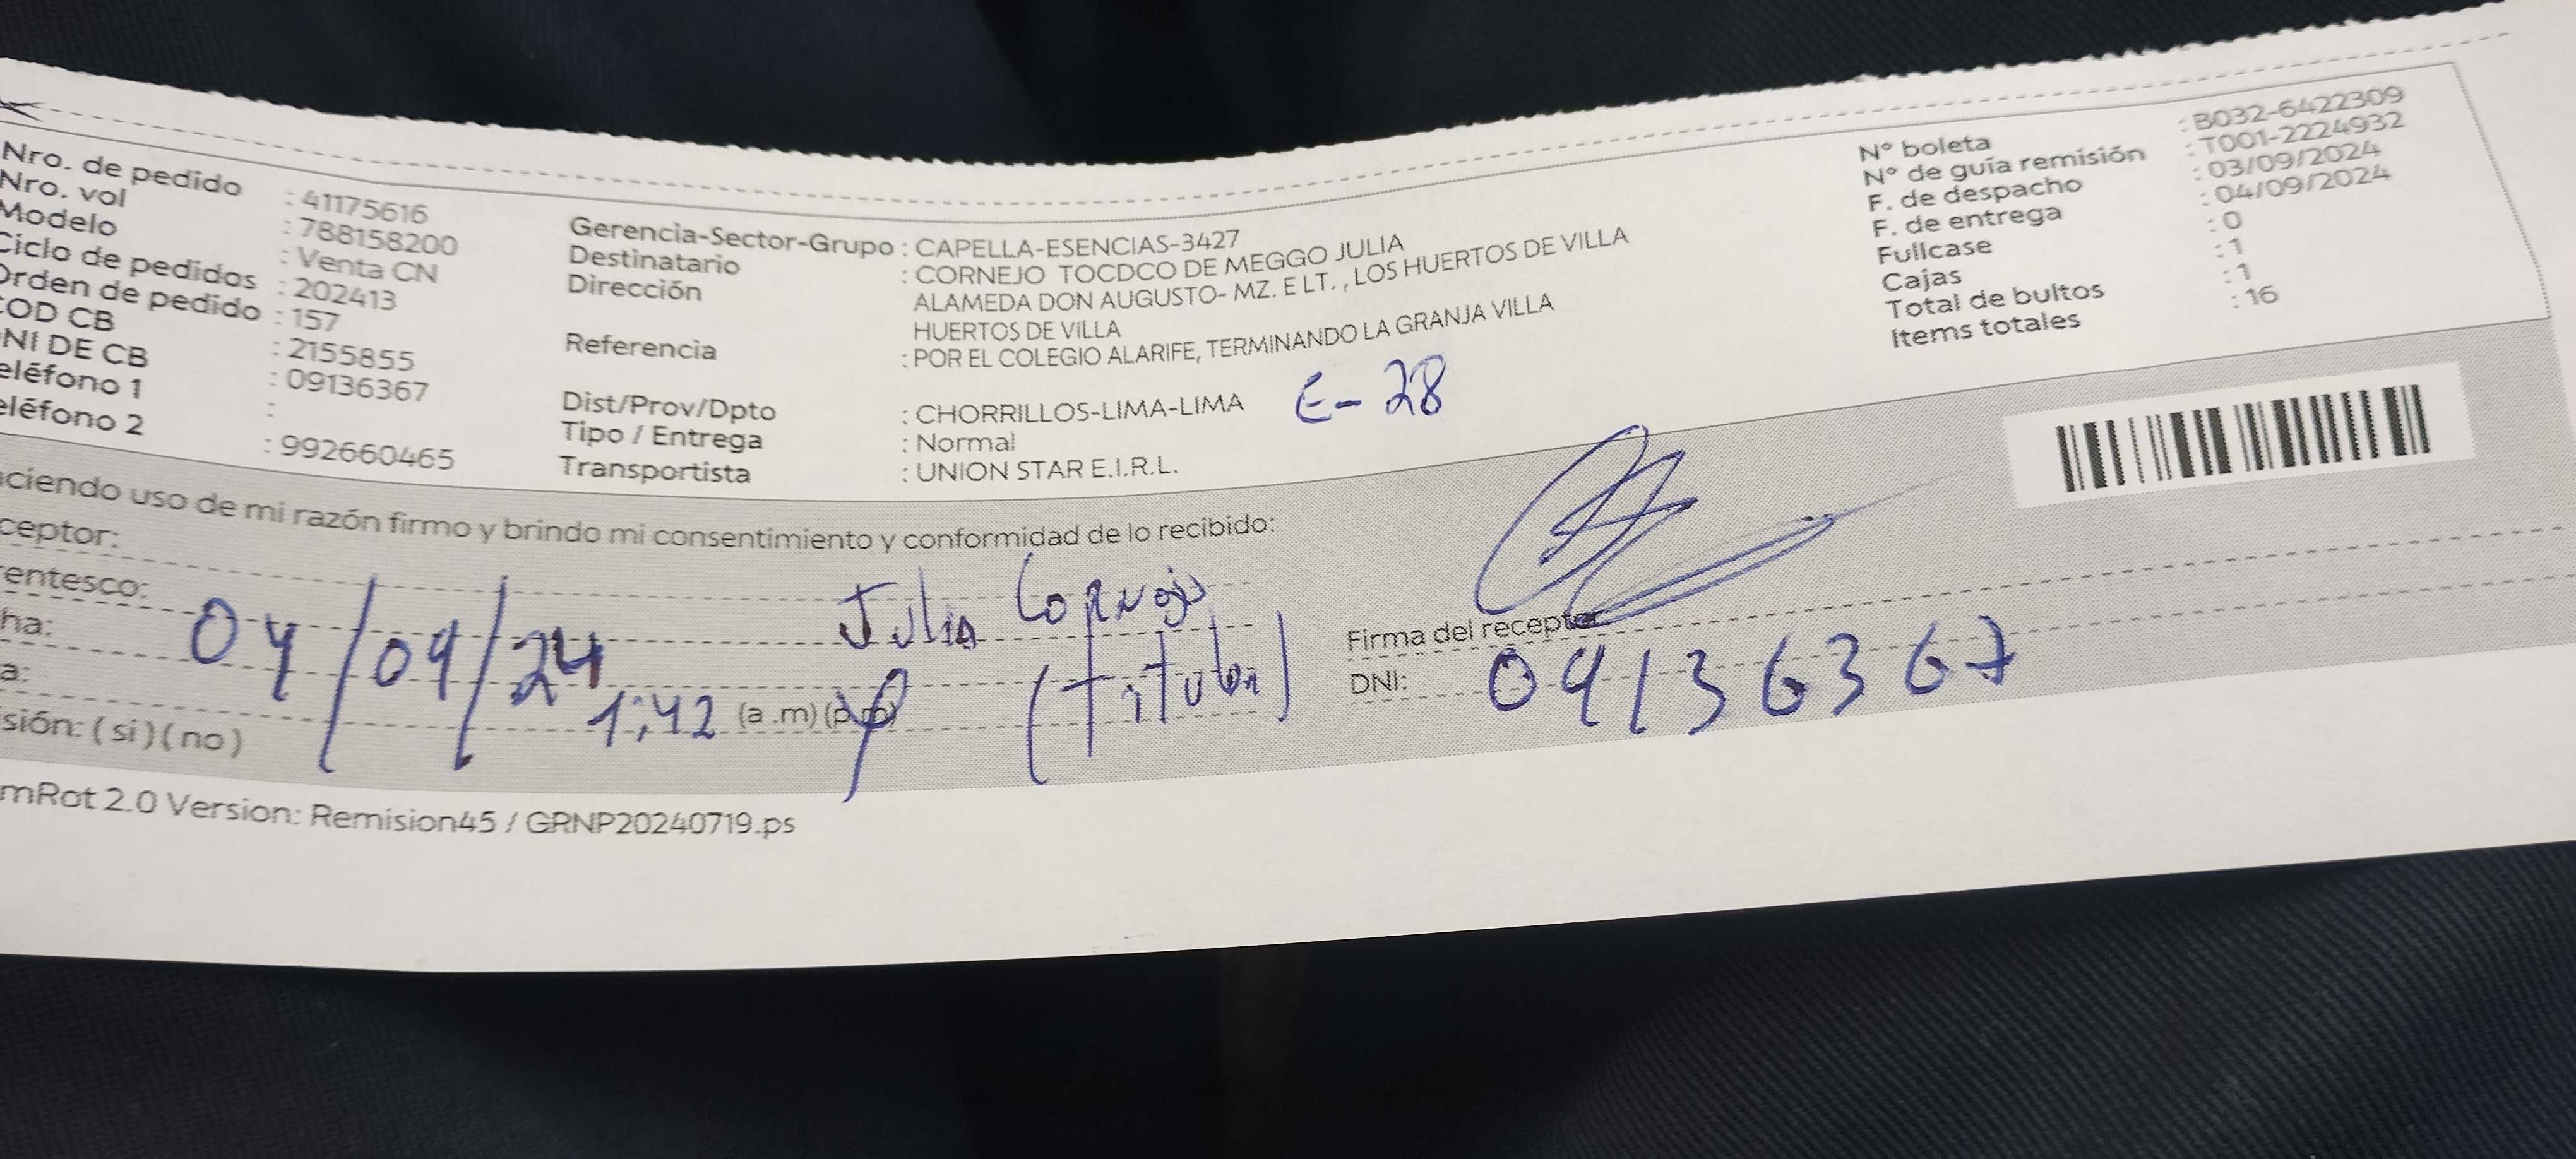 Nro. de pedido : 41175616
Nro. vol : 788158200
Modelo : Venta CN
Ciclo de pedidos : 202413
Orden de pedido : 157
COD CB : 2155855
NI DE CB : 09136367
eléfono 1 :
eléfono 2 : 992660465
Gerencia-Sector-Grupo : CAPELLA-ESENCIAS-3427
Destinatario : CORNEJO TOCDCO DE MEGGO JULIA
Dirección ALAMEDA DON AUGUSTO- MZ. E LT. , LOS HUERTOS DE VILLA
HUERTOS DE VILLA
Referencia : POR EL COLEGIO ALARIFE, TERMINANDO LA GRANJA VILLA
Dist/Prov/Dpto : CHORRILLOS-LIMA-LIMA E-28
Tipo / Entrega : Normal
Transportista : UNION STAR E.I.R.L.
N° boleta : B032-6422309
N° de guía remisión : T001-2224932
F. de despacho : 03/09/2024
F. de entrega : 04/09/2024
Fullcase : 0
Cajas : 1
Total de bultos : 1
Items totales : 16
ciendo uso de mi razón firmo y brindo mi consentimiento y conformidad de lo recibido:
ceptor: Julia Cornejo
entesco: (Titular)
ha: 04/09/24
a: 1:42 (a .m) (p.m)
sión: ( si ) ( no )
Firma del receptor
DNI: 09136367
mRot 2.0 Version: Remision45 / GRNP20240719.ps